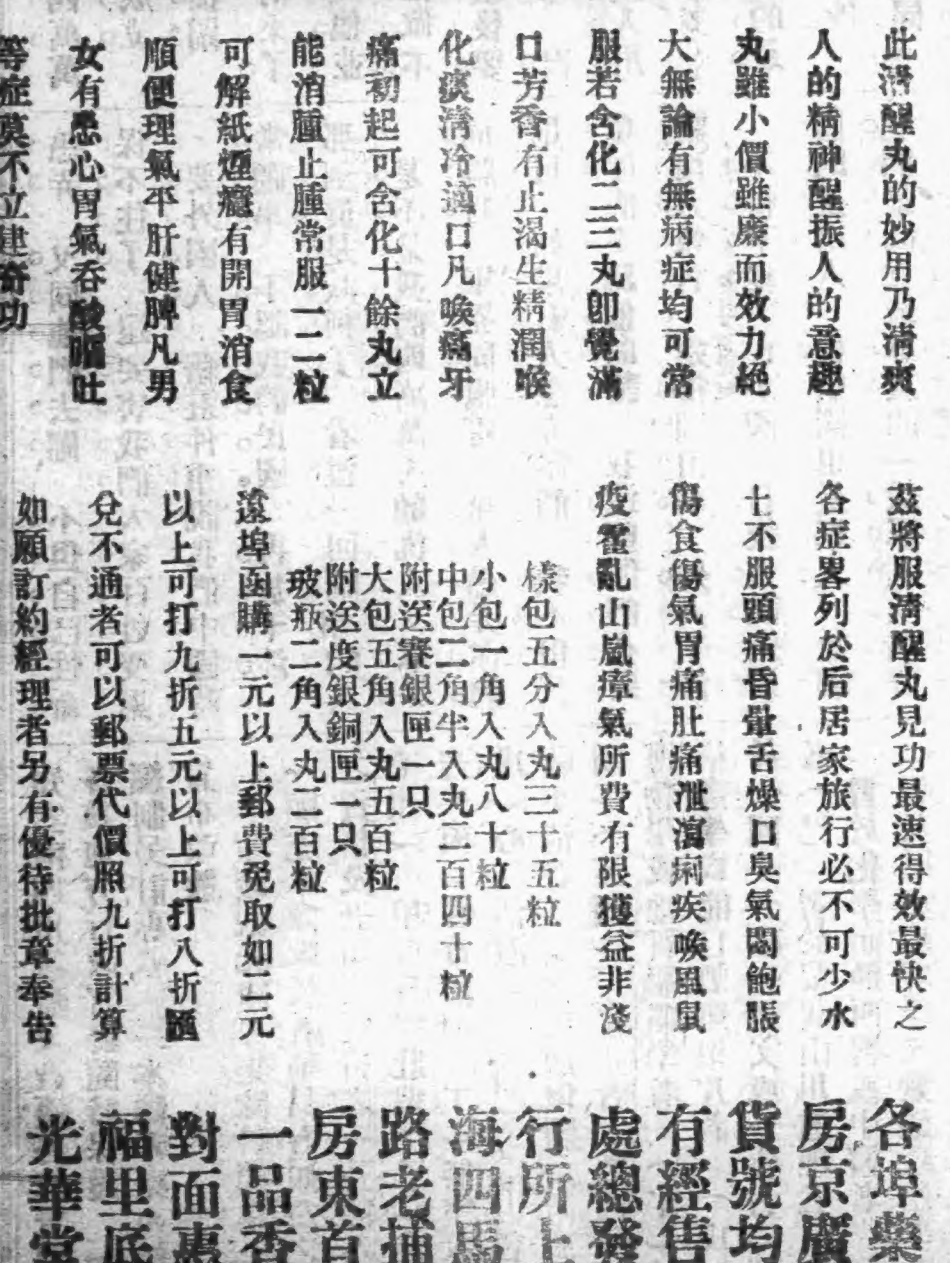 此清醒丸的妙用乃清爽
人的精神醒振人的意趣
丸雖小價雖廉而效力絕
大無論有無病症均可常
服若含化二三丸卽覺滿
口芳香有止渴生精潤喉
化痰清冷適口凡喉痛牙
痛初起可含化十餘丸立
能消腫止腫常服一二粒
可解紙煙癮有開胃消食
順便理氣平肝健脾凡男
女有惡心胃氣吞酸嘔吐
等症莫不立建奇功
茲將服清醒丸見功最速得效最快之
各症畧列於后居家旅行必不可少水
土不服頭痛昏暈舌燥口臭氣悶飽脹
傷食傷氣胃痛肚痛泄瀉痢疾喉風鼠
疫霍亂山嵐瘴氣所費有限獲益非淺
樣包五分入丸三十五粒
小包一角入丸八十粒
中包二角半入丸二百四十粒
附送賽銀匣一只
大包五角入丸五百粒
附送度銀銅匣一只
玻瓶二角入丸二百粒
遠埠函購一元以上郵費免取如二元
以上可打九折五元以上可打八折匯
兌不通者可以郵票代價照九折計算
如願訂約經理者另有優待批章奉告
各埠藥
房京廣
貨號均
有經售
處總發
行所上
海四馬
路老捕
房東首
一品香
對面惠
福里底
光華堂